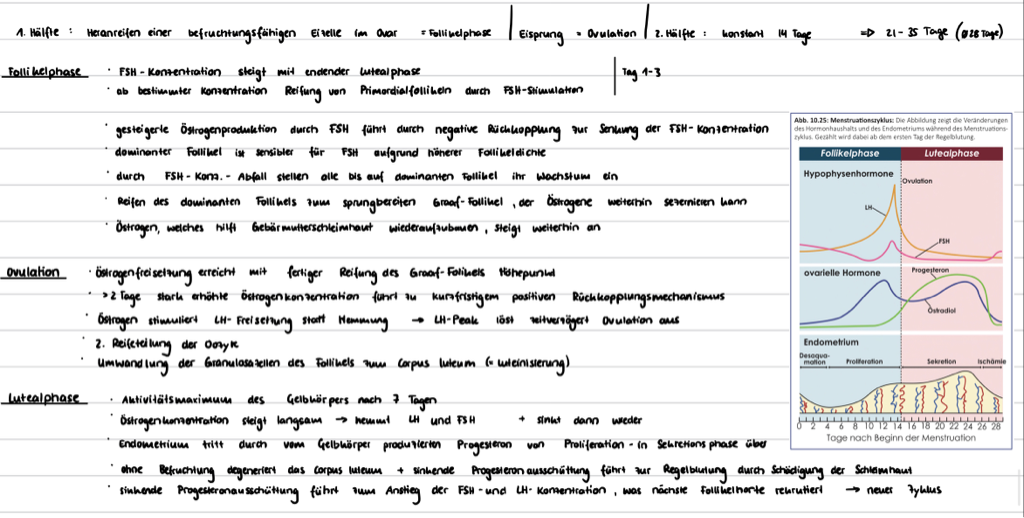 1. Hälfte : Heranreifen einer befruchtungsfähigen Eizelle im Ovar = Follikelphase | Eisprung = Ovulation | 2. Hälfte : konstant 14 Tage => 21 - 35 Tage (Ø28 Tage)
Follikelphase · FSH - Konzentration steigt mit endender Lutealphase | Tag 1-3
· ab bestimmter Konzentration Reifung von Primordialfollikeln durch FSH-Stimulation
· gesteigerte Östrogenproduktion durch FSH führt durch negative Rückkopplung zur Senkung der FSH-Konzentration
· dominanter Follikel ist sensibler für FSH aufgrund höherer Follikeldichte
· durch FSH-Konz.- Abfall stellen alle bis auf dominanten Follikel ihr Wachstum ein
· Reifen des dominanten Follikels zum sprungbereiten Graaf-Follikel, der Östrogene weiterhin sezernieren kann
· Östrogen, welches hilft Gebärmutterschleimhaut wiederaufzubauen, steigt weiterhin an
Ovulation · Östrogenfreisetzung erreicht mit fertiger Reifung des Graaf-Folikels Höhepunkt
· >2 Tage stark erhöhte Östrogenkonzentration führt zu kurzfristigem positiven Rückkopplungsmechanismus
· Östrogen stimuliert LH-Freisetzung statt Hemmung → LH-Peak löst zeitverzögert Ovulation aus
· 2. Reifeteilung der Oozyte
· Umwandlung der Granulosazellen des Follikels zum Corpus luteum (= Luteinisierung)
Lutealphase · Aktivitätsmaximum des Gelbkörpers nach 7 Tagen
· Östrogenkonzentration steigt langsam → hemmt LH und FSH + sinkt dann wieder
· Endometrium tritt durch vom Gelbkörper produzierten Progesteron von Proliferation- in Sekretionsphase über
· ohne Befruchtung degeneriert das Corpus luteum + sinkende Progesteronausschüttung führt zur Regelblutung durch Schädigung der Schleimhaut
· sinkende Progesteronausschüttung führt zum Anstieg der FSH- und LH- Konzentration, was nächste Follikelkohorte rekrutiert → neuer Zyklus
Abb. 10.25: Menstruationszyklus: Die Abbildung zeigt die Veränderungen
des Hormonhaushalts und des Endometriums während des Menstruations-
zyklus. Gezählt wird dabei ab dem ersten Tag der Regelblutung.
Follikelphase Lutealphase
Hypophysenhormone
Ovulation
LH
FSH
ovarielle Hormone
Progesteron
Östradiol
Endometrium
Desqua-
mation Proliferation Sekretion Ischämie
0 2 4 6 8 10 12 14 16 18 20 22 24 26 28
Tage nach Beginn der Menstruation